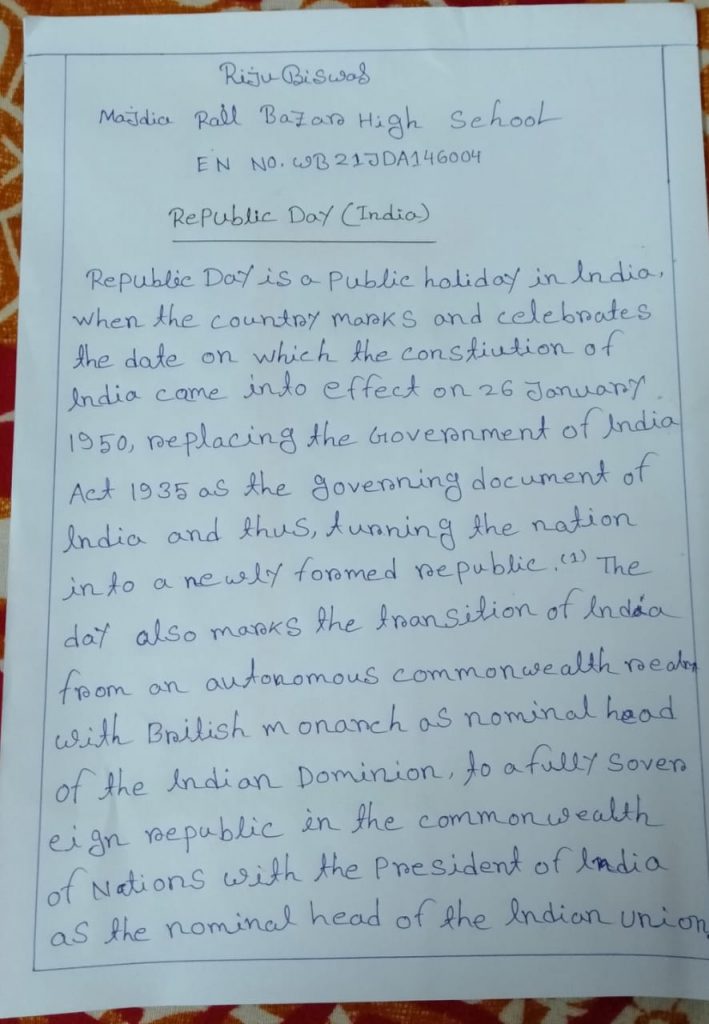 Riju Biswas
Majdia Rail Bazar High School
EN NO. WB21JDA146004
Republic Day (India)
Republic Day is a public holiday in India,
when the country marks and celebrates
the date on which the constiution of
India came into effect on 26 January
1950, replacing the Government of India
Act 1935 as the governing document of
India and thus, turning the nation
into a newly formed republic.(1) The
day also marks the transition of India
from an autonomous commonwealth realm
with British monarch as nominal head
of the Indian Dominion, to a fully Sover
eign republic in the commonwealth
of Nations with the President of India
as the nominal head of the Indian union.